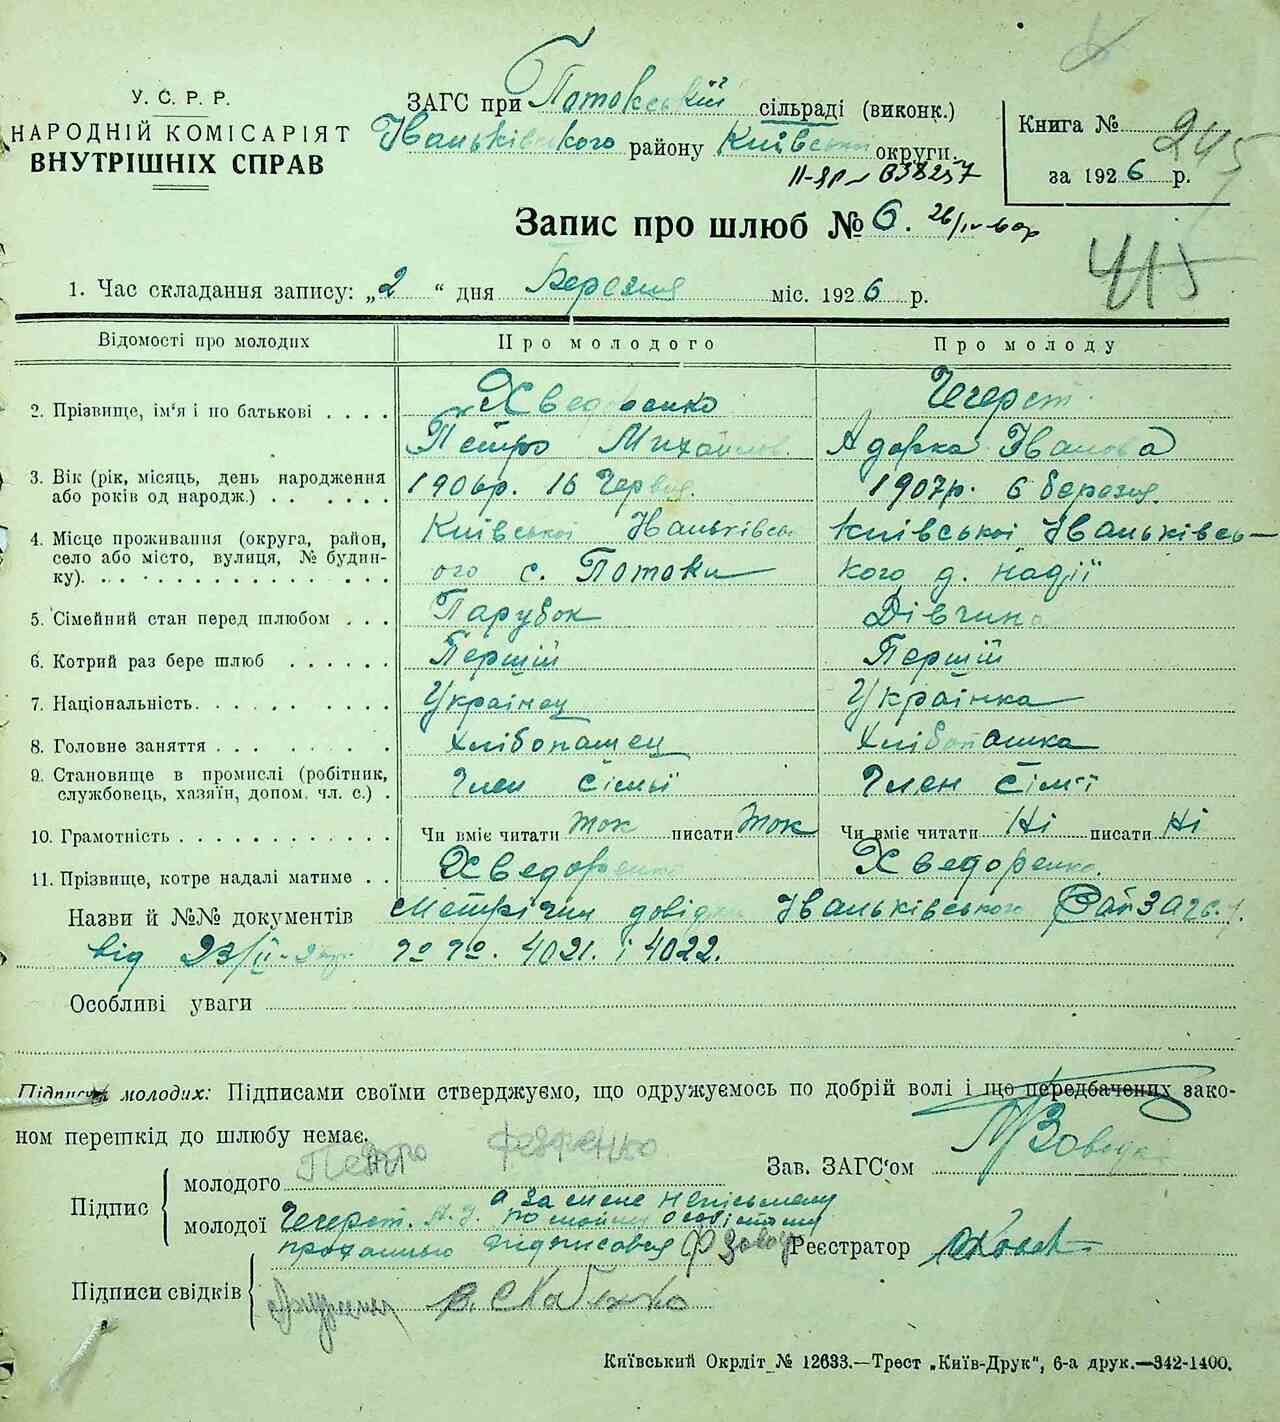 У. С. Р. Р.
НАРОДНІЙ КОМІСАРІЯТ
ВНУТРІШНІХ СПРАВ
ЗАГС при Потокській сільраді (виконк.)
Іваньківського району Київськ округи.
II-ЯР № 038257
Книга № 245
за 1926 р.
Запис про шлюб № 6. 26/IV
415
1. Час складання запису: „2 “ дня Березня міс. 1926 р.
Відомості про молодих Про молодого Про молоду
2. Прізвище, ім'я і по батькові . . . . Хведоренко Чечерст.
Петро Михайлов. Адарка Іванова
3. Вік (рік, місяць, день народження 1906р. 16 Червня. 1907р. 6 березня.
або років од народж.) . . . . . .
4. Місце проживання (округа, район, Київської Іваньківсь Київської Іваньківсь-
село або місто, вулиця, № будин- ого с. Потоки кого д. „Надії“
ку). . . . . . . . . . . . .
5. Сімейний стан перед шлюбом . . . Парубок Дівчина
6. Котрий раз бере шлюб . . . . . . Перший Перший
7. Національність. . . . . . . . . Українец Українка
8. Головне заняття . . . . . . . . Хлібопашец Хлібопашка
9. Становище в промислі (робітник, Член сімьї Член сімї
службовець, хазяїн, допом. чл. с.) .
10. Грамотність . . . . . . . . . . Чи вміє читати так писати так Чи вміє читати Ні писати Ні
11. Прізвище, котре надалі матиме . . Хведоренко Хведоренко.
Назви й №№ документів Метрічни довідки Іваньківського Райзагс.
від 23/II № №. 4021. і 4022.
Особливі уваги
Підписи молодих: Підписами своїми стверджуємо, що одружуємось по добрій волі і що передбачених зако-
ном перешкід до шлюбу немає.
Підпис
молодого Петро
Зав. ЗАГС'ом
молодої Чечерст. А. І. а за мене неписьмену
по моїй особістому
проханню підписовся
Реєстратор
Підписи свідків
Київський Окрліт № 12633.—Трест „Київ-Друк“, 6-а друк.—342-1400.